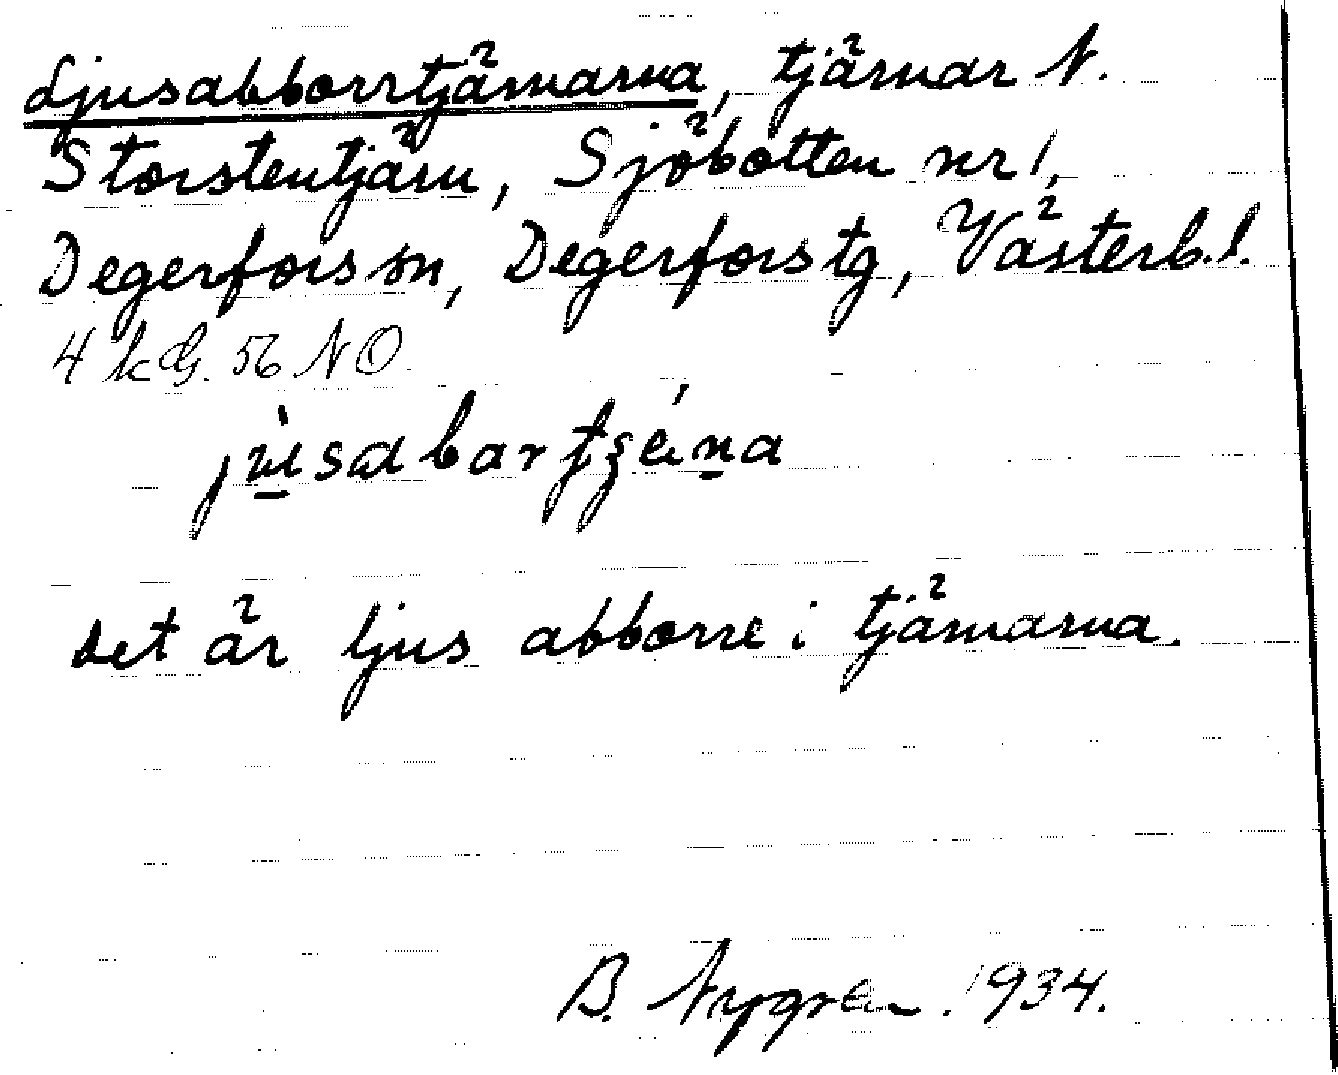 Ljusabborrtjärnarna, tjärnar N.
Storstentjärn, Sjöbotten nr 1,
Degerfors sn, Degerfors tg, Västerb.l.
4 kG. 56 NO
det är ljus abborre i tjärnarna.
B. Nygren. 1934.